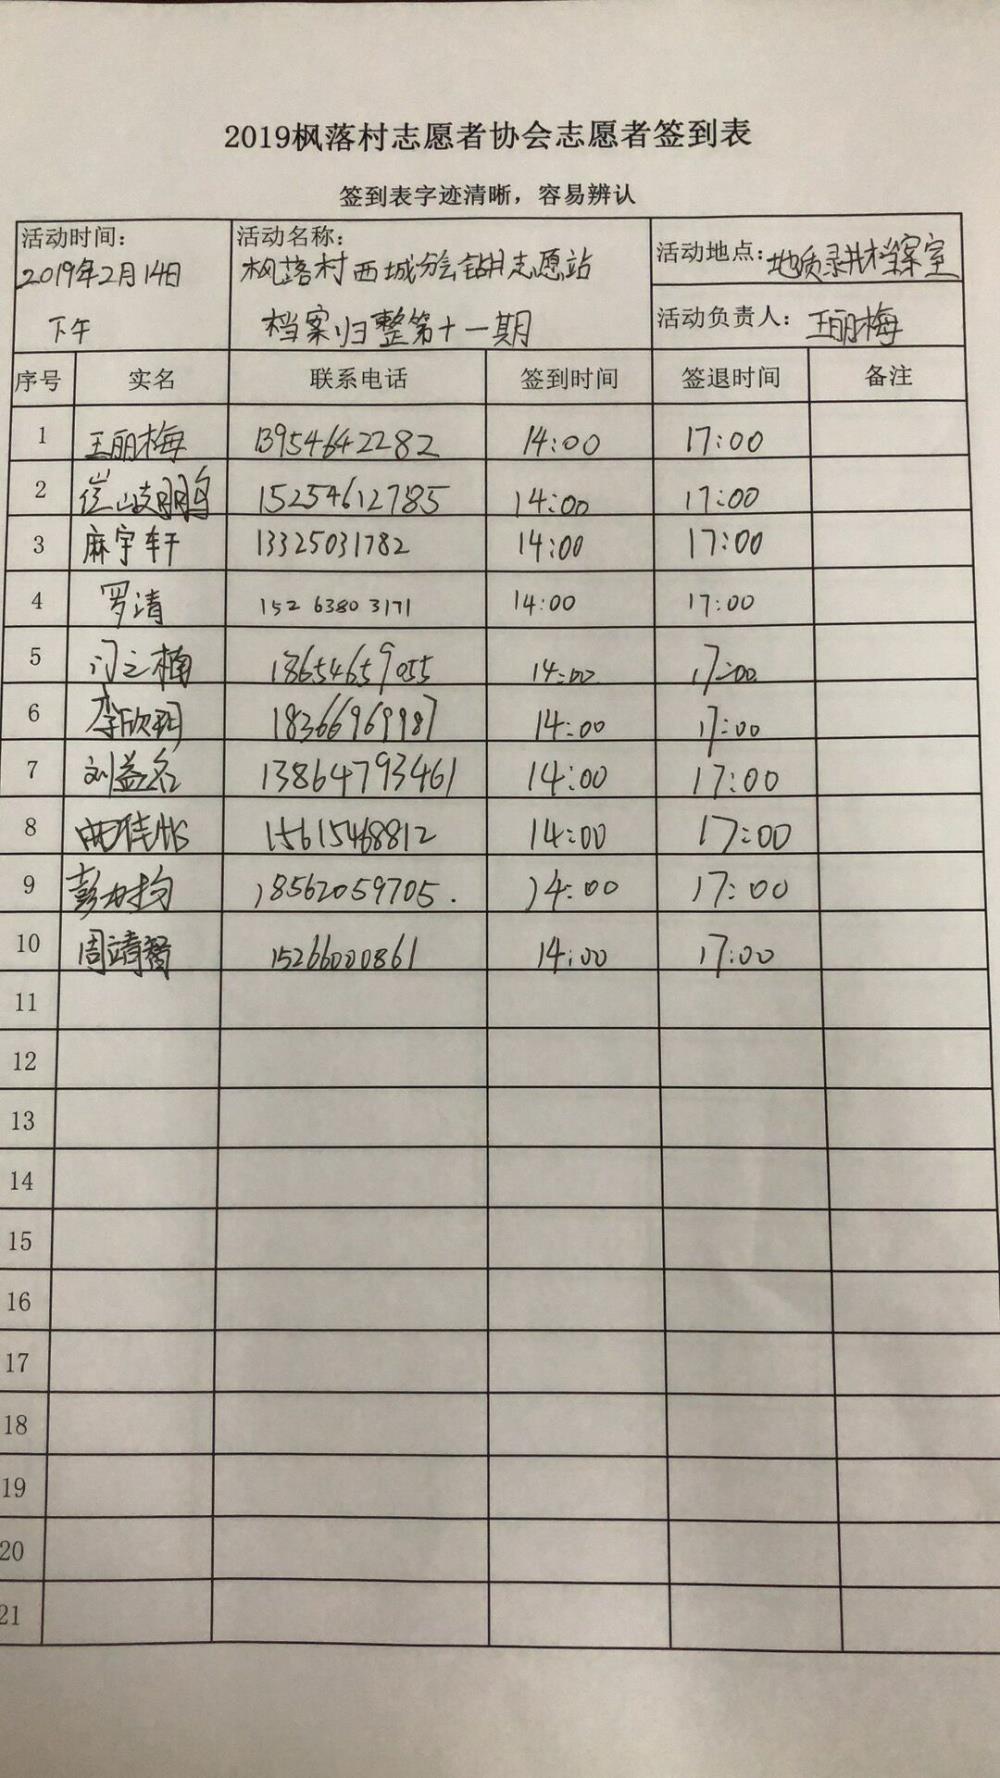 2019枫落村志愿者协会志愿者签到表
签到表字迹清晰，容易辨认
活动时间：
2019年2月14日
下午
活动名称：
枫落村西城分会钻井志愿站
档案归整第十一期
活动地点：地质录井档案室
活动负责人：王丽梅
序号 实名 联系电话 签到时间 签退时间 备注
1 王丽梅 13954642282 14:00 17:00
2 崔岐鹏 15254612785 14:00 17:00
3 麻宇轩 13325031782 14:00 17:00
4 罗清 152 6380 3171 14:00 17:00
5 门之楠 18654659055 14:00 17:00
6 李欣玥 18366969987 14:00 17:00
7 刘益名 13864793461 14:00 17:00
8 15615468812 14:00 17:00
9 彭 18562059705. 14:00 17:00
10 周靖智 15266000861 14:00 17:00
11
12
13
14
15
16
17
18
19
20
21